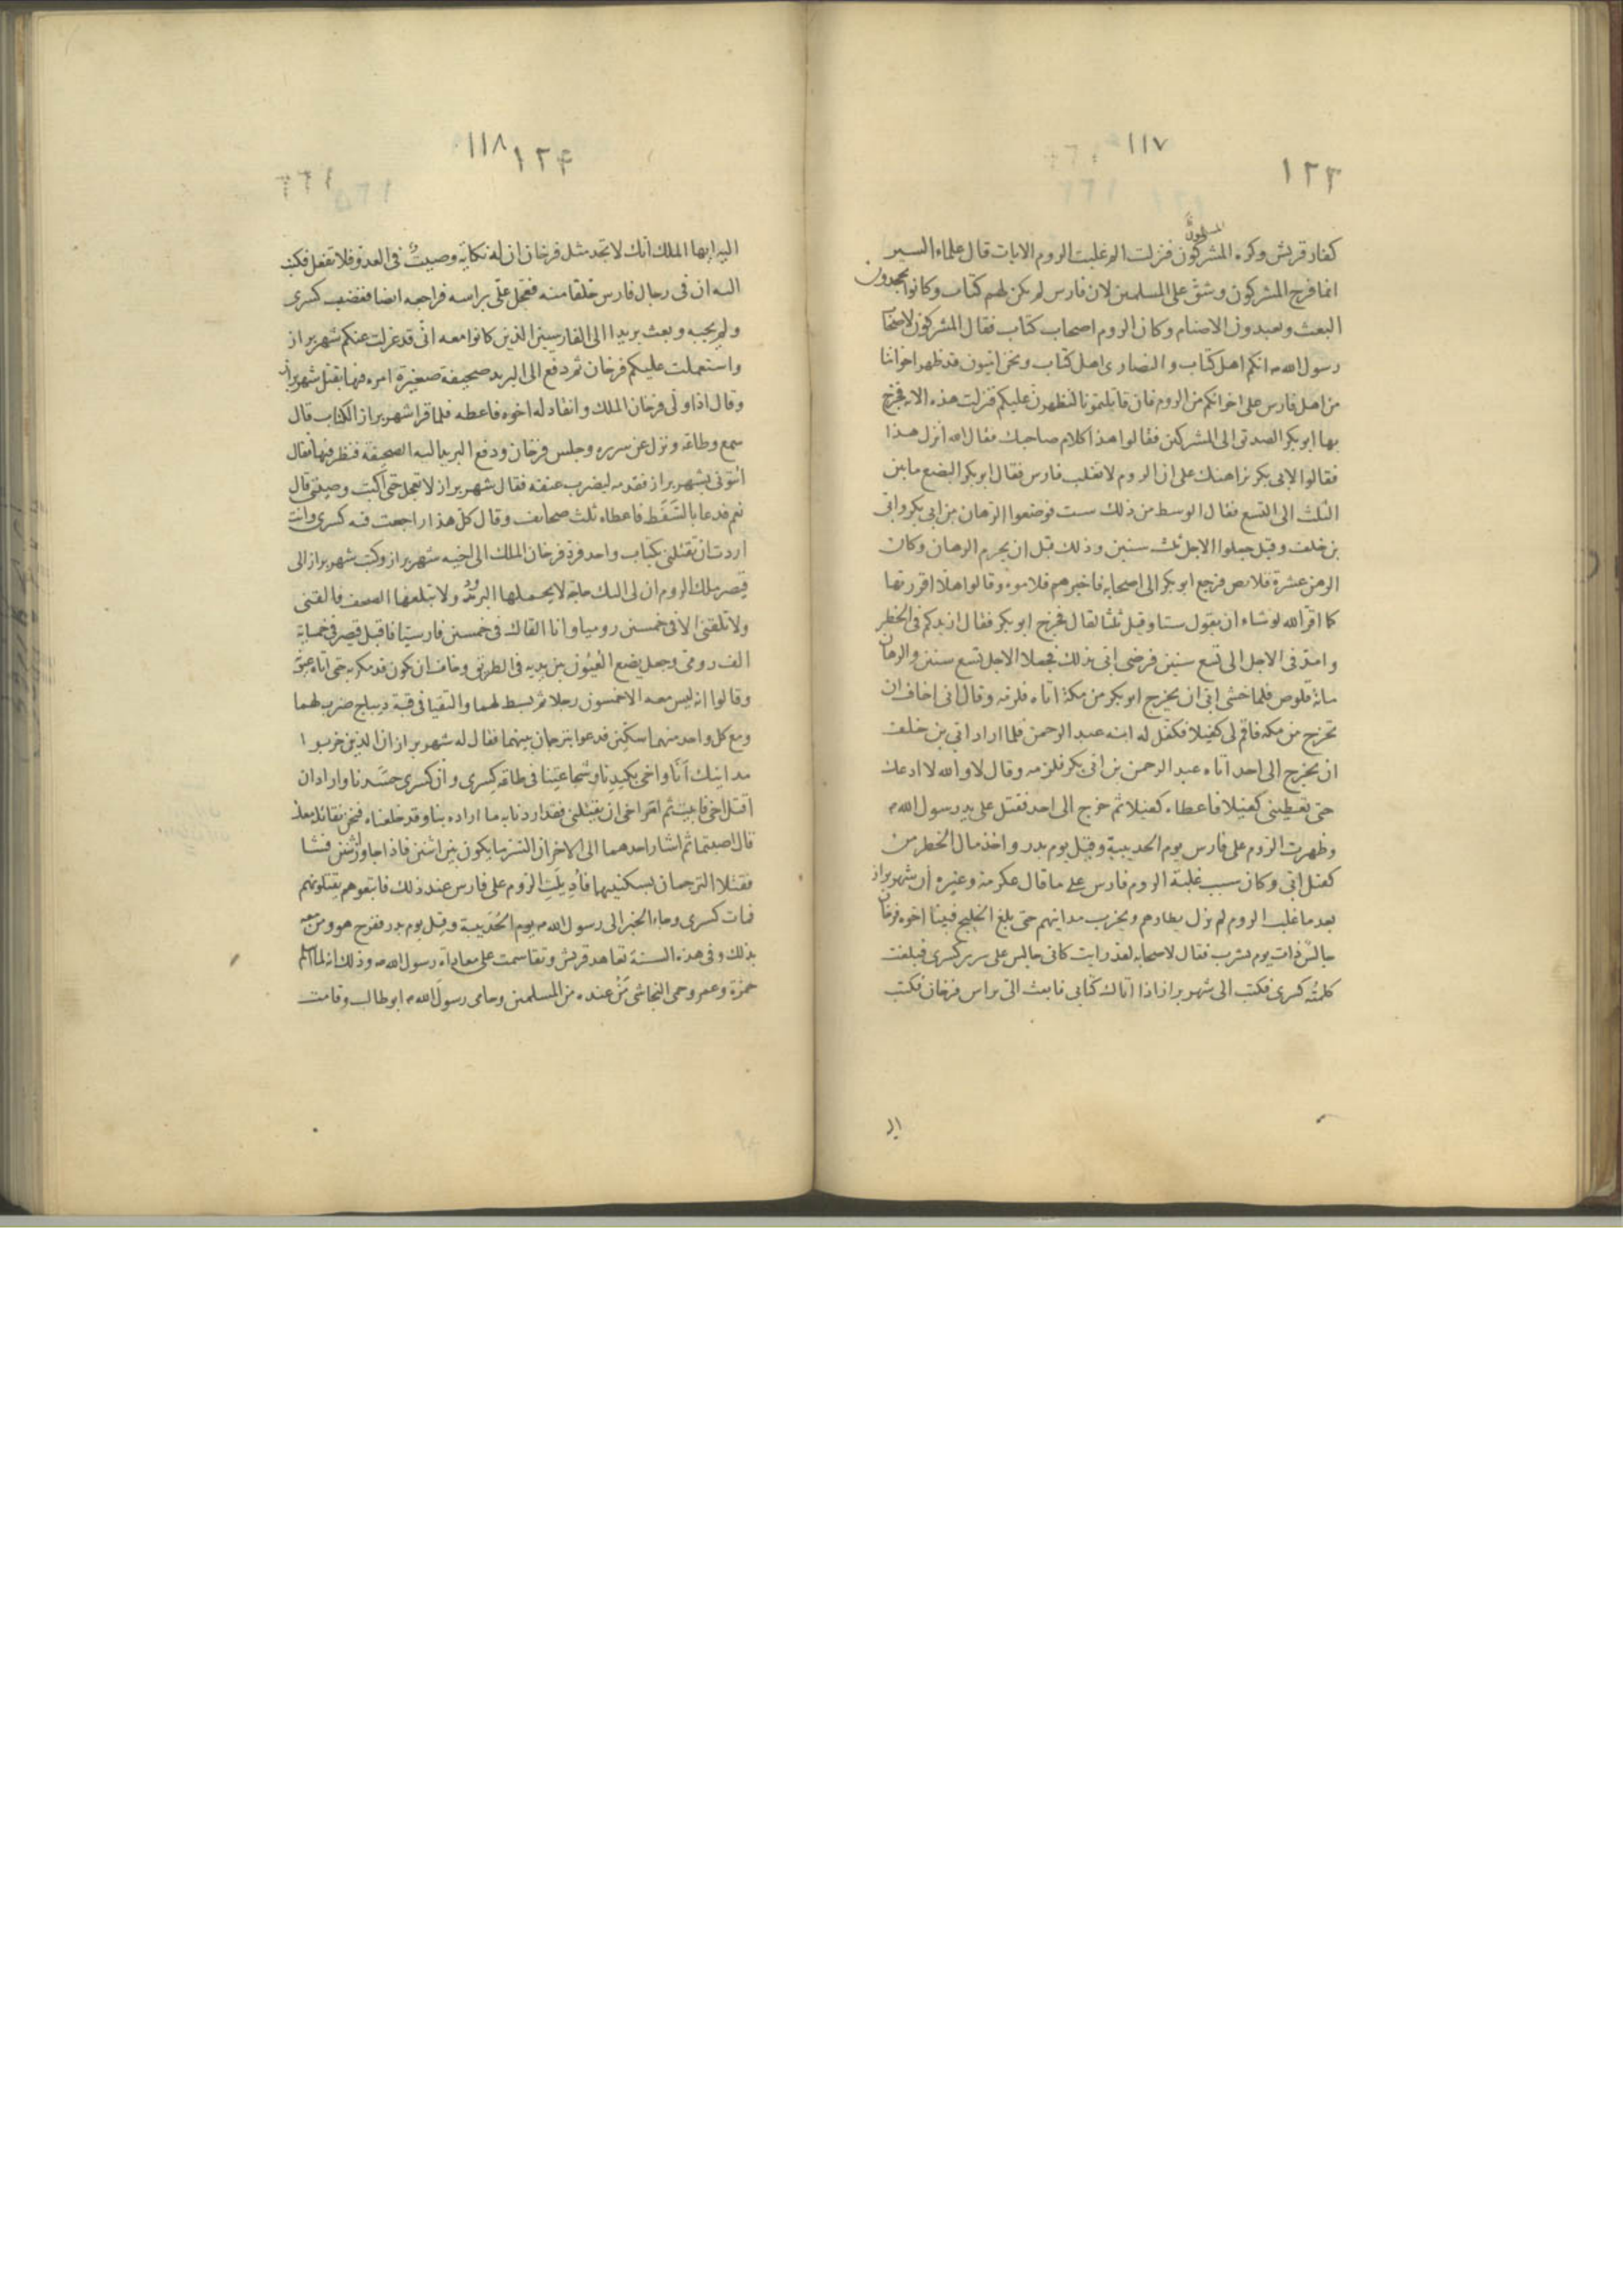 ١١٧
١٢٣
كفار قريش وكره المشركون المسلمون فنزلت الم غلبت الروم الايات قال علماء السير
انما فرح المشركون وشق على المسلمين لان فارس لم يكن لهم كتاب وكانوا يجحدون
البعث ويعبدون الاصنام وكان الروم اصحاب كتاب فقال المشركون لاصحاب
رسول الله ص انكم اهل كتاب والنصارى اهل كتاب ونحن اميون قد ظهر اخواننا
من اهل فارس على اخوانكم من الروم فان قاتلتمونا لنظهرن عليكم فنزلت هذه الاية فخرج
بها ابو بكر الصديق الى المشركين فقالوا هذا كلام صاحبك فقال الله أنزل هذا
فقالوا لابى بكر نراهنك على ان الروم لا تغلب فارس فقال ابو بكر البضع ما بين
الثلث الى التسع فقال الوسط من ذلك ست فوضعوا الرهان من ابى بكر وابى
بن خلف وقيل جعلوا الاجل ثلث سنين وذلك قبل ان يحرم الرهان وكان
الرهن عشرة قلائص فرجع ابو بكر الى اصحابه فاخبرهم فلاموه وقالوا هلّا اقررتها
كما اقر الله لو شاء ان يقول ستا وقيل ثلثا لقال فخرج ابو بكر فقال ازيدكم فى الخطر
وامدّ فى الاجل الى تسع سنين فرضى ابى بذلك فجعلا الاجل تسع سنين والرهان
مائة قلوص فلما خشى ابى ان يخرج ابو بكر من مكة اتاه فلزمه وقال انى اخاف ان
تخرج من مكه فاقم لى كفيلا فكفل له ابنه عبد الرحمن فلما اراد ابي بن خلف
ان يخرج الى احد اتاه عبد الرحمن بن ابى بكر فلزمه وقال لا والله لا ادعك
حتى تعطينى كفيلا فاعطاه كفيلا ثم خرج الى احد فقتل على يد رسول الله ص
وظهرت الروم على فارس يوم الحديبية وقيل يوم بدر واخذ مال الخطر من
كفيل ابى وكان سبب غلبة الروم فارس على ما قال عكرمة وغيره أن شهربراز
بعد ما غلب الروم لم يزل يطاردهم ويخرب مداينهم حتى بلغ الخليج فبينا اخوه فرخان
جالسٌ ذات يوم يشرب فقال لاصحابه لقد رايت كانى جالس على سرير كسرى فبلغت
كلمتُه كسرى فكتب الى شهربراز اذا اتاك كتابى فابعث الىّ براس فرخان فكتب
الي
١١٨
١٢٤
اليه ايها الملك انك لا تجد مثل فرخان ان له نكاية وصيتٌ فى العدوّ فلا تفعل فكتب
اليه ان فى رجال فارس خلفا منه فعجّل علىّ براسه فراجعه ايضا فغضب كسرى
ولم يجبه وبعث بريدا الى الفارسيين الذين كانوا معه انّى قد عزلت عنكم شهربراز
واستعملت عليكم فرخان ثم دفع الى البريد صحيفة صغيرة امره فيها بقتل شهربراز
وقال اذا ولّى فرخان الملك وانقاد له اخوه فاعطه فلما قرا شهربراز الكتاب قال
سمع وطاعة ونزل عن سريره وجلس فرخان ودفع البريد اليه الصحيفة فنظر فيها فقال
ائتونى بشهربراز فقدمه ليضرب عنقه فقال شهربراز لا تعجل حتى اكتب وصيتى قال
نعم فدعا بالسَّفَط فاعطاه ثلث صحائف وقال كلّ هذا راجعت فيه كسرى وانت
اردت ان تقتلنى بكتاب واحد فردّ فرخان الملك الى اخيه شهربراز وكتب شهربراز الى
قيصر ملك الروم ان لى اليك حاجة لا يحملها البريد ولا تبلغها الصحف فالقنى
ولا تلقنى الا فى خمسين روميا وانا القاك فى خمسين فارسيّا فاقبل قيصر فى خمسماية
الف رومى وجعل يضع العُيُون بين يديه فى الطريق وخاف ان يكون قد مكر به حتى اتاه عيونه
وقالوا انه ليس معه الا خمسون رجلا ثم بسط لهما والتقيا فى قبة ديباج ضرب لهما
ومع كل واحد منهما سكين فدعوا بترجمان بينهما فقال له شهربراز ان الذين خربوا
مداينك أنَا واخى بكيدنا وشجاعتنا فى طاعة كسرى وانّ كسرى حسدنا واراد ان
اقتل اخى فابيت ثم امر اخى ان يقتلنى فقد اردنا به ما اراده بنا وقد خلعناه فنحن نقاتله معك
قال اصبتما ثم اشار احدهما الى الاخر ان السر ما يكون بين اثنين فاذا جاوز اثنين فشا
فقتلا الترجمان بسكينيهما فأُديلَت الروم على فارس عند ذلك فاتبعوهم يقتلونهم
فمات كسرى وجاء الخبر الى رسول الله ص يوم الحُدَيبية وقيل يوم بدر ففرح هو ومن معه
بذلك وفى هذه السنة تعاهد قريش وتقاسمت على معاداة رسول الله ص وذلك انه لما اسلم
حمزة وعمر وحمى النجاشى مَنْ عنده من المسلمين وحامى رسولَ الله ص ابو طالب وقامت